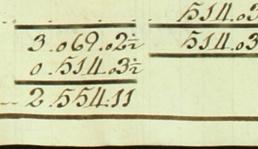 514.03
3.069.02½ 514.03
0.514.03½
2.554.11